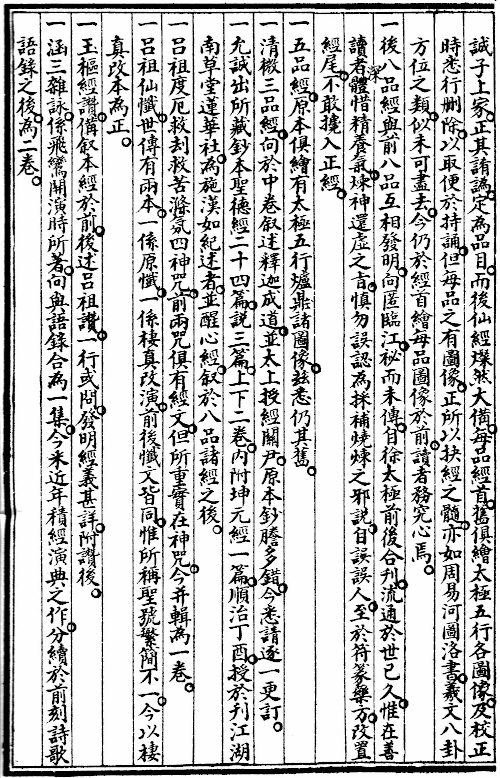 誠子上家。正其譌謁。定為品目。而後仙經燦然大備。每品經首。舊俱繪太極五行各圖像。及校正
時悉行刪除。以取便於持誦。但每品之有圖像。正所以抉經之髓。亦如周易河圖洛書。羲文八卦
方位之類。似未可盡去。今仍於經首繪每品圖像於前。讀者務究心焉。
一後八品經。與前八品互相發明。向匿臨江。秘而未傳。自徐太極前後合刊。流通於世已久。惟在善
讀者深體惜精養氣煉神還虛之旨。慎勿誤認為採補燒煉之邪說。自誤誤人。至於符篆藥方。改置
經尾。不敢攙入正經。
一五品經。原本俱繪有太極五行爐鼎諸圖像。茲悉仍其舊。
一清微三品經。向於中卷叙述釋迦成道。並太上授經關尹。原本鈔謄多錯。今悉請逐一更訂。
一允誠出所藏鈔本聖德經二十四篇。說三篇。上下二卷。內附坤元經一篇。順治丁酉。授於刊江湖
南草堂蓮華社。為施漢如紀述者。並醒心經。叙於八品諸經之後。
一呂祖度厄救刦救苦滌氛四神咒。前兩咒俱有經文。但所重實在神咒。今并輯為一卷。
一呂祖仙懺。世傳有兩本。一係原懺。一係棲真改演。前後懺文皆同。惟所稱聖號繁簡不一。今以棲
真改本為正。
一玉樞經讚。備叙本經於前。後述呂祖讚一行。或問發明經義甚詳。附讚後。
一涵三雜詠。係飛鸞開演時所著。向與語錄合為一集。今采近年積經演典之作。分續於前刻詩歌
語錄之後。為二卷。